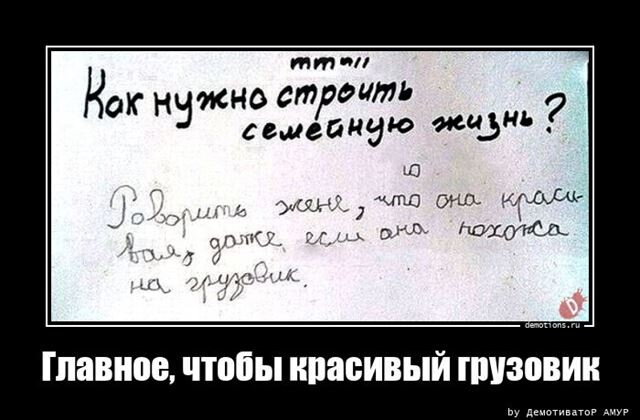 Как нужно строить
семейную жизнь?
Говорить жене, что она краси-
вая, даже если она похожа
на грузовик.
demotions.ru
Главное, чтобы красивый грузовик
by ДемотиватоР АМУР